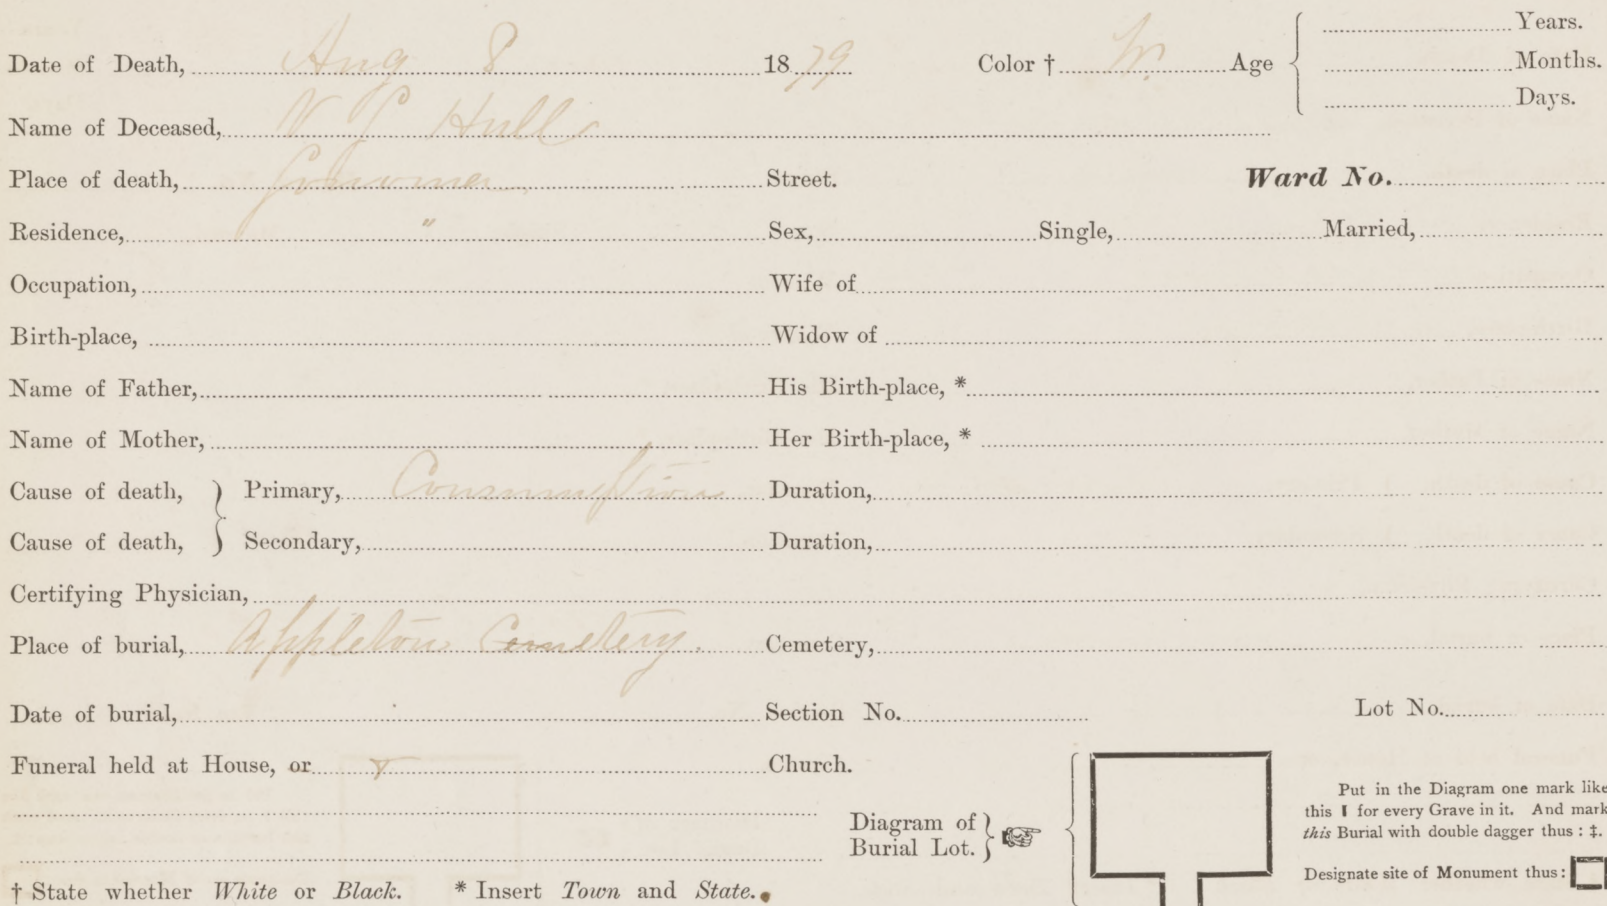 Years.
Date of Death, Aug 8 1879 Color † W. Age Months.
Days.
Name of Deceased, N P Hull
Place of death, Street. Ward No.
Residence, " Sex, Single, Married,
Occupation, Wife of
Birth-place, Widow of
Name of Father, His Birth-place, *
Name of Mother, Her Birth-place, *
Cause of death, } Primary, Consumption Duration,
Cause of death, } Secondary, Duration,
Certifying Physician,
Place of burial, Appleton Cemetery. Cemetery,
Date of burial, Section No. Lot No.
Funeral held at House, or Church.
Put in the Diagram one mark like
this ▮ for every Grave in it. And mark
this Burial with double dagger thus : ‡.
Diagram of
Burial Lot. }
Designate site of Monument thus :
† State whether White or Black. * Insert Town and State.